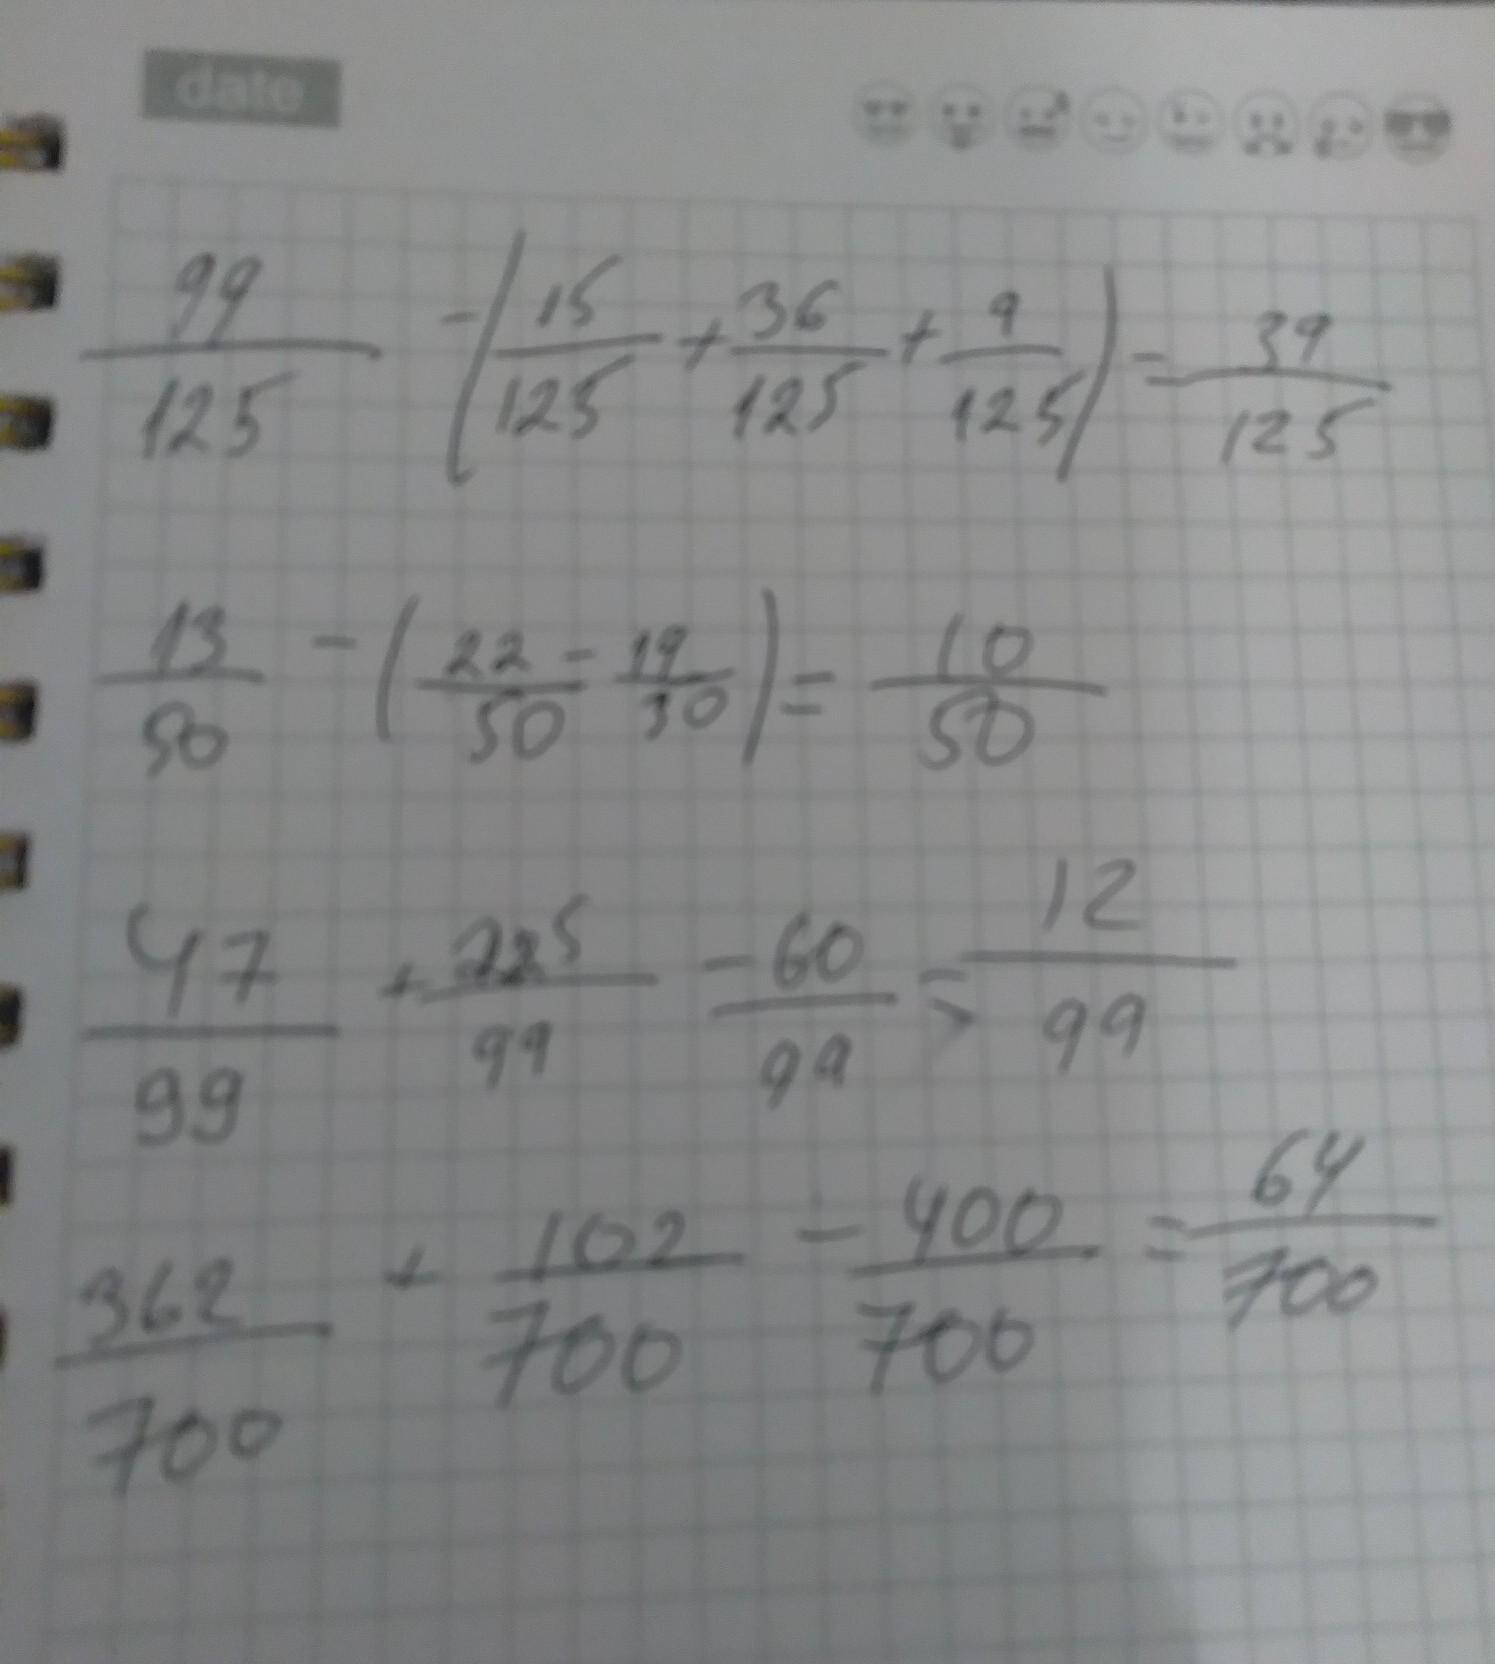 date
99/125 - (15/125 + 36/125 + 9/125) = 39/125
13/50 - (22/50 - 19/30) = 10/50
47/99 + 25/99 - 60/99 = 12/99
362/700 + 102/700 - 400/700 = 64/700